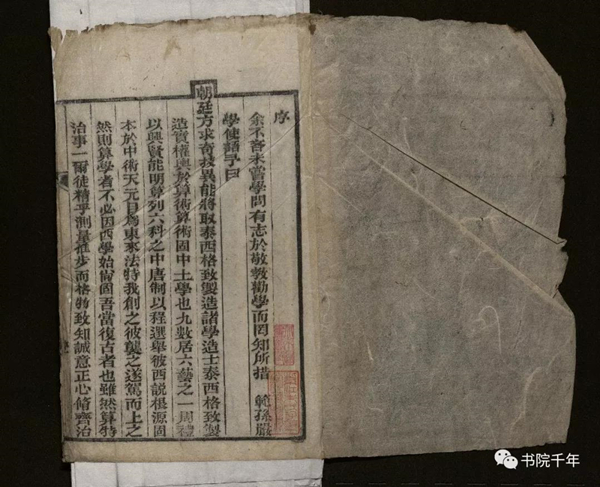 序
余不吝未嘗學問有志於敬教勸學而罔知所措 範孫嚴
學使語予曰
朝廷方求奇技異能將取泰西格致製造諸學造士泰西格致製
造實權輿於算術算術固中土學也九數居六藝之一周禮
以興賢能明算列六科之中唐制以程選舉彼西說根源固
本於中術天元目為東來法特我創之彼襲之遂駕而上之
然則算學者不必因西學始尚固吾當復古者也雖然算特
治事一爾徒精乎測量推步而格物致知誠意正心脩齊治
书院千年